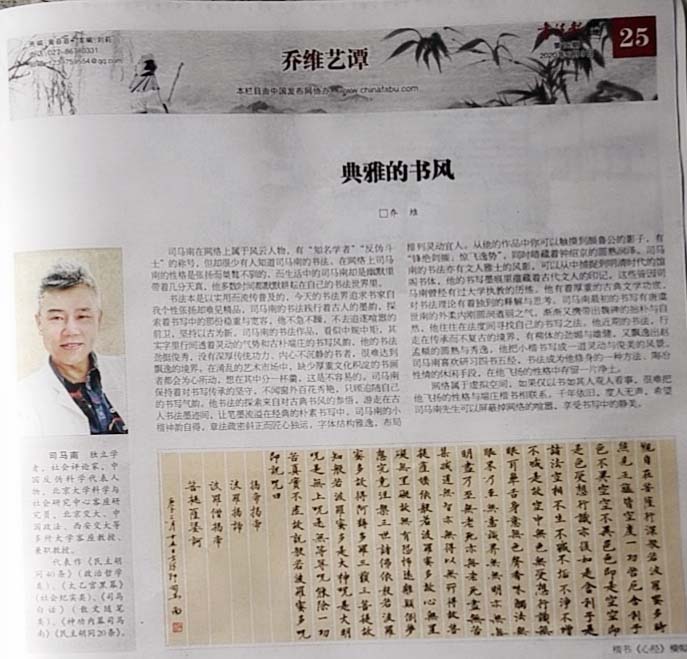 乔维艺谭
25
本栏目由中国发布网协办 www.chinafxbu.com
典雅的书风
□乔 维
司马南在网络上属于风云人物，有“知名学者”“反伪斗
士”的称号，但却很少有人知道司马南的书法，在网络上司马
南的性格是张扬而桀骜不驯的，而生活中的司马南却是幽默里
带着几分天真，他多数时间都默默耕耘在自己的书法世界里。
书法本是以实用而流传普及的，今天的书法界追求书家自
我个性张扬却难见精品，司马南的书法践行着古人的墨韵，探
索着书写中的那份稳重与宽容，他不急不躁，不去追逐喧嚣的
前卫，坚持以古为新。司马南的书法作品，看似中规中矩，其
实字里行间透着灵动的气势和古朴端庄的书写风韵，他的书法
劲挺俊秀，没有深厚传统功力、内心不沉静的书者，很难达到
飘逸的境界，在消乱的艺术市场中，缺少厚重文化积淀的书画
者都会为心所动，想在其中分一杯羹，这是不容易的。司马南
保持着对书写传承的坚守，不闻窗外百花秀艳，只顾追随自己
的书写气韵。他书法的探索来自对古典书风的参悟，游走在古
人书法墨迹间，让笔墨流淌在经典的朴素书写中，司马南的小
楷神韵自得，章法疏密斜正而匠心独运，字体结构雅逸，布局
排列灵动宜人。从他的作品中你可以触摸到颜鲁公的影子，有
“锋绝剑摧，惊飞逸势”，同时暗藏着钟绍京的圆熟润泽。司马
南的书法亦有文人雅士的风影，可以从中捕捉到明清时代的馆
阁书体，他的书写墨痕里蕴藏着古代文人的印记，这些皆因司
马南曾经有过大学执教的历练，他有着厚重的古典文学功度，
对书法理论有着独到的释解与思考。司马南最初的书写有唐虞
世南的外柔内刚圆润透丽之气，渐渐又携带出魏碑的拙朴与自
然，他往往在法度间寻找自己的书写之法，他近期的书法，行
走在传承而不复古的境界，有褚体的劲媚与雄健，又飘逸出赵
孟頫的圆熟与秀逸，他把小楷书写成一道灵动与俊美的风景。
司马南喜欢研习四书五经，书法成为他修身的一种方法，陶冶
性情的休闲手段，在他飞扬的性格中存留一片净土。
网络属于虚拟空间，如果仅以书如其人观人看事，很难把
他飞扬的性格与端庄楷书相联系，千年依旧，度人无声，希望
司马南先生可以屏蔽掉网络的喧嚣，享受书写中的静美。
司马南 独立学
者，社会评论家，中
国反伪科学代表人
物，北京大学科学与
社会研究中心客座研
究员，北京交大、中
国政法、西安交大等
多所大学客座教授、
兼职教授。
代表作《民主胡
同40条》(政治哲学
类)、《太乙宫黑幕》
(社会纪实类)、《司马
白话》(散文随笔
类)、《神功内幕司马
南》《民主胡同20条》。
观自在菩萨行深般若波罗蜜多时
照见五蕴皆空度一切苦厄舍利子
色不异空空不异色色即是空空即
是色受想行识亦复如是舍利子是
诸法空相不生不灭不垢不净不增
不减是故空中无色无受想行识无
眼耳鼻舌身意无色声香味触法无
眼界乃至无意识界无无明亦无无
明尽乃至无老死亦无老死尽无苦
集灭道无智亦无得以无所得故菩
提萨埵依般若波罗蜜多故心无罣
碍无罣碍故无有恐怖远离颠倒梦
想究竟涅槃三世诸佛依般若波罗
蜜多故得阿耨多罗三藐三菩提故
知般若波罗蜜多是大神咒是大明
咒是无上咒是无等等咒能除一切
苦真实不虚故说般若波罗蜜多咒
即说咒曰
揭帝揭帝
波罗揭帝
波罗僧揭帝
菩提萨婆诃
楷书《心经》